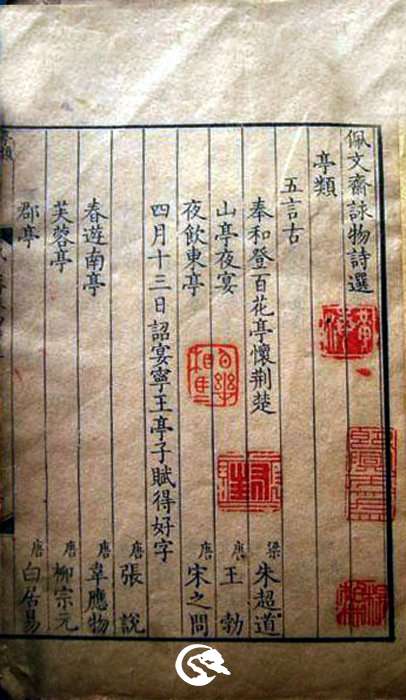 佩文齋詠物詩選
亭類
五言古
奉和登百花亭懷荆楚 梁 朱超道
山亭夜宴 唐 王勃
夜飲東亭 唐 宋之問
四月十三日詔宴寧王亭子賦得好字 唐 張說
春遊南亭 唐 韋應物
芙蓉亭 唐 柳宗元
郡亭 唐 白居易